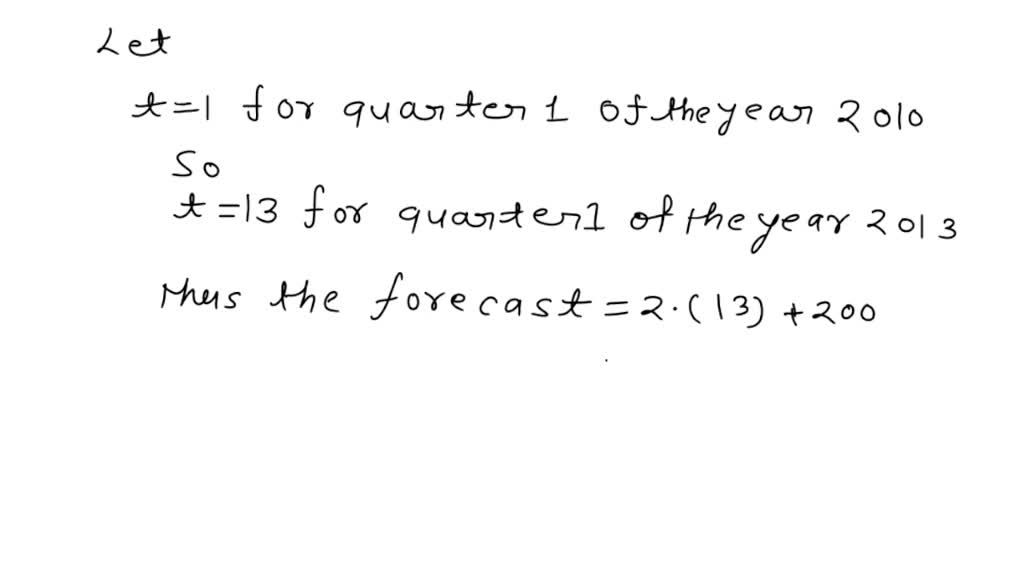 Let
t=1 for quarter 1 of the year 2010
So
t=13 for quarter 1 of the year 2013
thus the forecast = 2·(13) + 200